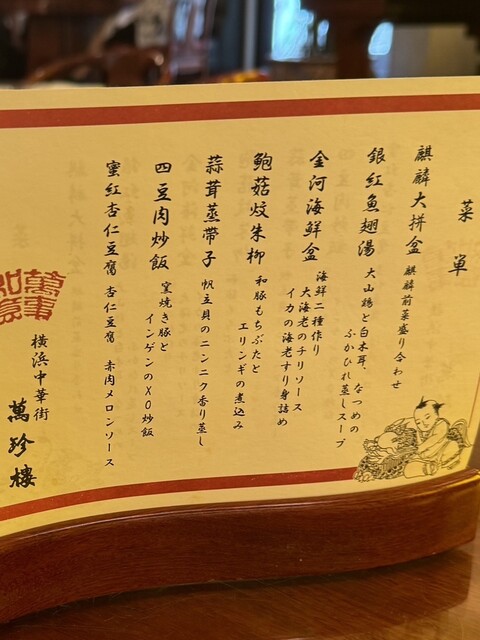 菜单
麒麟大拼盆 麒麟前菜盛り合わせ
銀紅魚翅湯 大山鶏と白木耳、なつめの
ふかひれ蒸しスープ
金河海鮮盒 海鮮二種作り
大海老のチリソース
イカの海老すり身詰め
鮑菇炆朱柳 和豚もちぶたと
エリンギの煮込み
蒜茸蒸帶子 帆立貝のニンニク香り蒸し
四豆肉炒飯 窯焼き豚と
インゲンのXO炒飯
蜜紅杏仁豆腐 杏仁豆腐 赤肉メロンソース
萬事如意
横浜中華街
萬珍樓